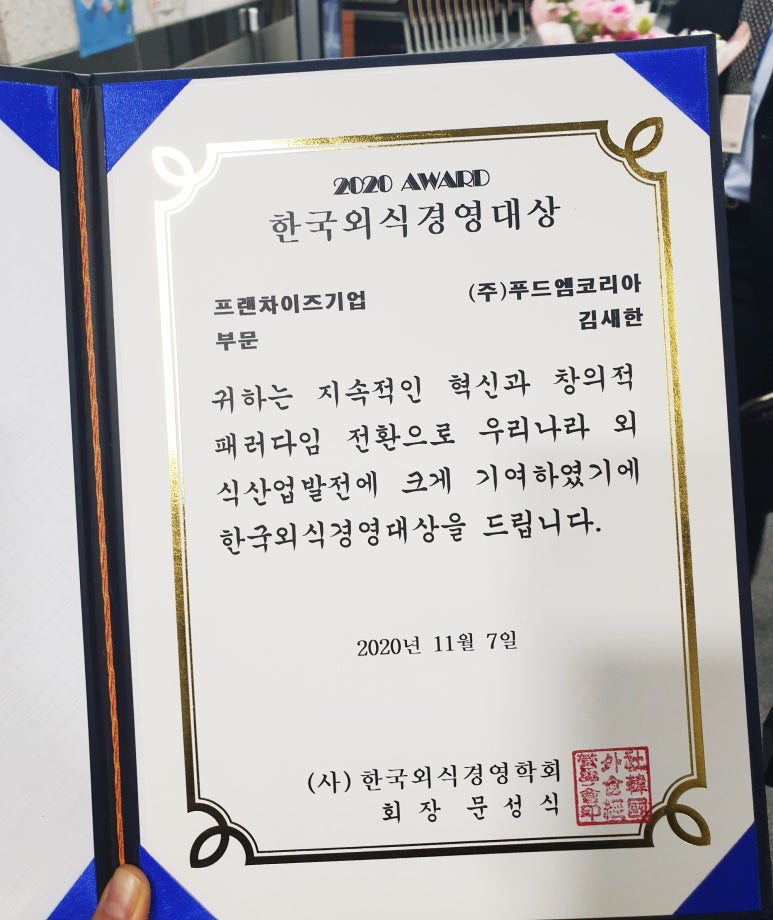 2020 AWARD
한국외식경영대상
프랜차이즈기업 (주)푸드엠코리아
부문 김새한
귀하는 지속적인 혁신과 창의적
패러다임 전환으로 우리나라 외
식산업발전에 크게 기여하였기에
한국외식경영대상을 드립니다.
2020년 11월 7일
(사)한국외식경영학회
회장 문성식